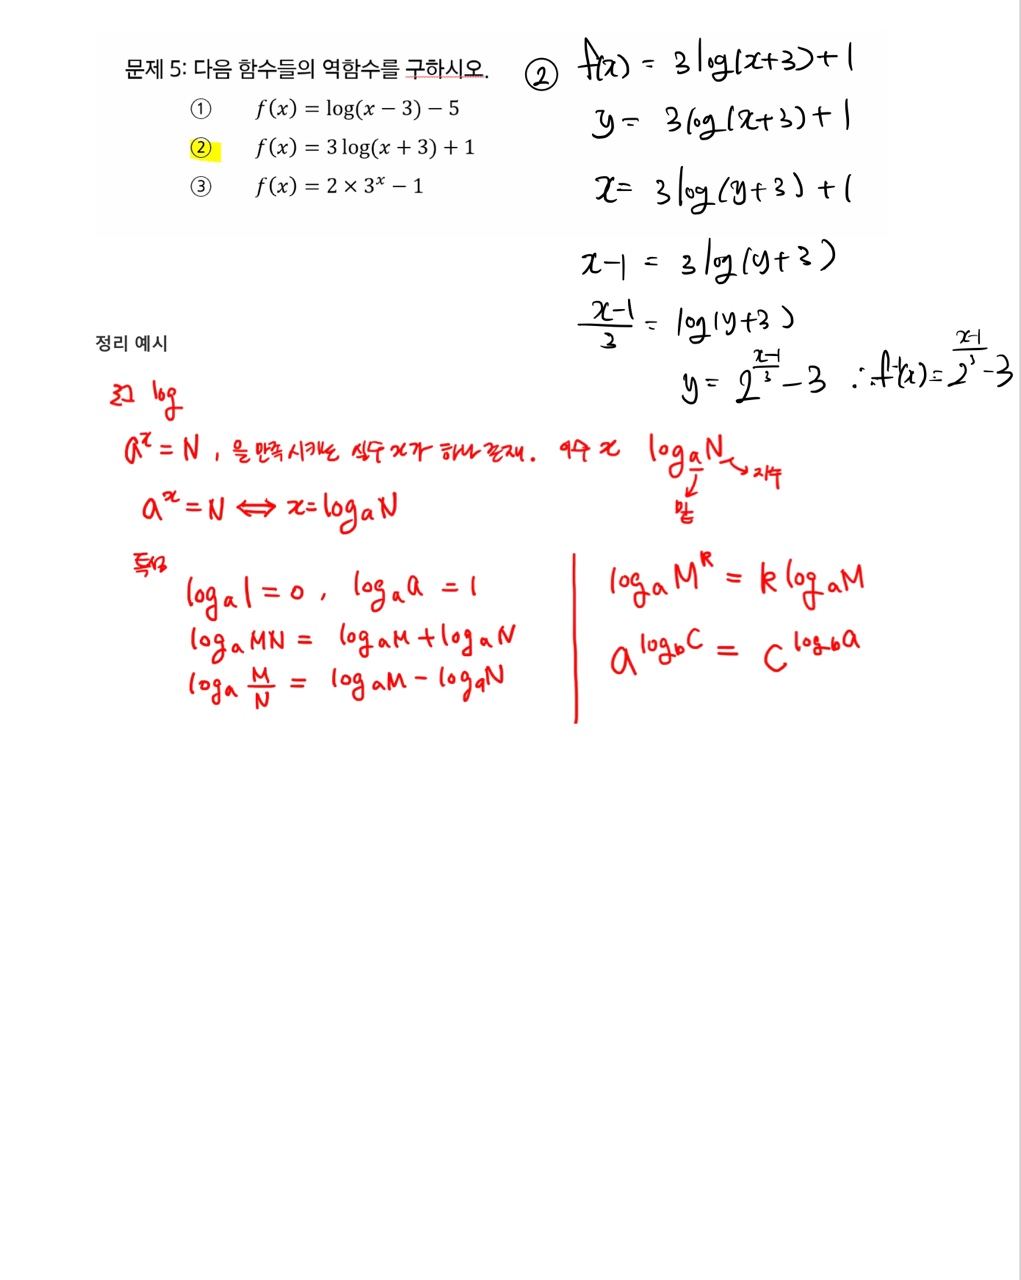 문제 5: 다음 함수들의 역함수를 구하시오.
① f(x) = log(x − 3) − 5
② f(x) = 3 log(x + 3) + 1
③ f(x) = 2 × 3ˣ − 1
② f(x) = 3log(x+3)+1
y = 3log(x+3)+1
x = 3log(y+3)+1
x-1 = 3log(y+3)
(x-1)/3 = log(y+3)
y = 2^((x-1)/3) - 3 ∴ f⁻¹(x) = 2^((x-1)/3) - 3
정리 예시
log
aˣ = N, 을 만족시키는 실수 x가 하나 존재. x logₐN
지수
밑
aˣ = N ⇔ x = logₐN
logₐ1 = 0, logₐa = 1
logₐMN = logₐM + logₐN
logₐ M/N = logₐM - logₐN
logₐMᵏ = k logₐM
a^(log_b c) = c^(log_b a)